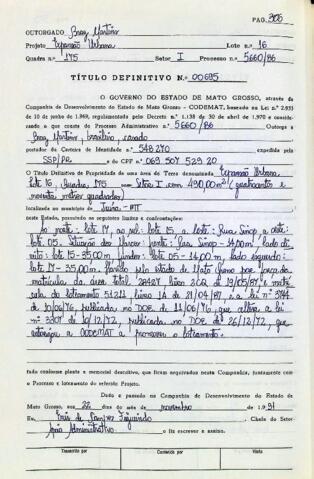 PAG. 306
OUTORGADO Braz Martins
Projeto Expansão Urbana Lote n.º 16
Quadra n.º 175 Setor I Processo n.º 5660/86
TÍTULO DEFINITIVO N.º 00695
O GOVERNO DO ESTADO DE MATO GROSSO, através da
Companhia de Desenvolvimento do Estado de Mato Grosso - CODEMAT, baseado na Lei n.º 2.935
de 10 de junho de 1.969, regulamentada pelo Decreto n.º 1.138 de 30 de abril de 1.970 e considerando
o que consta do Processo Administrativo n.º 5660/86 Outorga a
Braz Martins, brasileiro, casado
portador da Carteira de Identidade n.º 548270 expedida pela
SSP/PR e do CPF n.º 069 507 529 20
O Título Definitivo de Propriedade de uma área de Terra denominada Expansão Urbana
lote 16, Quadra 175 com Setor I com 490,00m2 (quatrocentos e
noventa metros quadrados)
localizada no município de Juína-MT
neste Estado, possuindo os seguintes limites e confrontações:
Ao norte: lote 17, ao sul: lote 15, a leste: Rua Sinop, a oeste:
lote 05. Situação dos Marcos: frente: Rua Sinop - 14,00m lado di
reito: lote 15-35,00m fundos: lote 05-14,00m, lado esquerdo:
lote 17-35,00m. Havido pelo estado de Mato Grosso por força da
matrícula da área total, 28427 livro 2CQ de 19/05/87 e matrí
cula do loteamento 51211 livro 1A de 21/04/87 e a lei nº 3744
de 10/06/76 publicada no DOE de 11/06/76, que altera a lei
nº 3307 de 18/12/72, publicada no DOE de 26/12/72, que
autoriza a CODEMAT a promover o loteamento.
tudo conforme planta e memorial descritivo, que ficam arquivados nesta Companhia, juntamente com
o Processo e loteamento do referido Projeto.
Dado e passado na Companhia de Desenvolvimento do Estado de
Mato Grosso, aos 22 dias do mês de novembro de 1.991
Eu, Figueiredo, Chefe do Setor
Apoio Administrativo o fiz escrever e assino.
Transcrito por Conferido por Visto